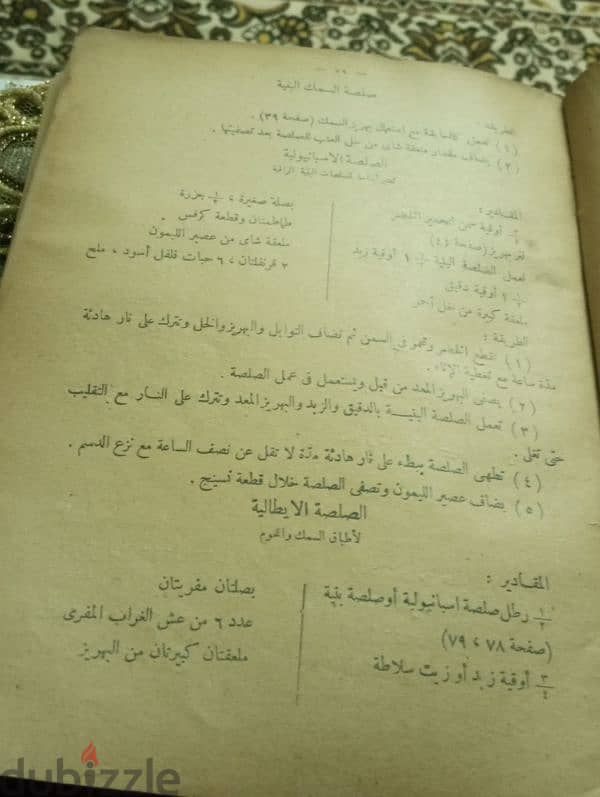 — ٧٩ —
صلصة السمك البنية
الطريقة :
(١) تعمل كالسابقة مع استعمال بهريز السمك (صفحة ٣٩) .
(٢) يضاف مقدار ملعقة شاى من خل العنب للصلصة بعد تصفيتها .
الصلصة الاسبانيولية
تعتبر أساسا للصلصات البنية الراقية
المقادير :
أوقية سمن لتحمير الخضر
لتر بهريز (صفحة ٤٤)
لعمل الصلصة البنية ١ ١/٢ أوقية زبد
١ ١/٢ أوقية دقيق
ملعقة كبيرة من خل أحمر
بصلة صغيرة ، ١/٢ جزرة
طماطمتان وقطعة كرفس
ملعقة شاى من عصير الليمون
٢ قرنفلتان ، ٦ حبات فلفل أسود ، ملح
الطريقة :
(١) تقطع الخضر وتحمر فى السمن ثم تضاف التوابل والبهريز والخل وتترك على نار هادئة
مدة ساعة مع تغطية الإناء .
(٢) يصفى البهريز المعد من قبل ويستعمل فى عمل الصلصة .
(٣) تعمل الصلصة البنيــة بالدقيق والزبد والبهريز المعد وتترك على النــار مع التقليب
حتى تغلى .
(٤) تطهى الصلصة ببطء على نار هادئة مدة لا تقل عن نصف الساعة مع نزع الدسم .
(٥) يضاف عصير الليمون وتصفى الصلصة خلال قطعة نسيج .
الصلصة الايطالية
لأطباق السمك واللحوم
المقادير :
١/٢ رطل صلصة اسبانيولية أو صلصة بنية
(صفحة ٧٨ ، ٧٩)
٣/٤ أوقية زبد أو زيت سلاطة
بصلتان مفريتان
عدد ٦ من عش الغراب المفرى
ملعقتان كبيرتان من البهريز
dubizzle